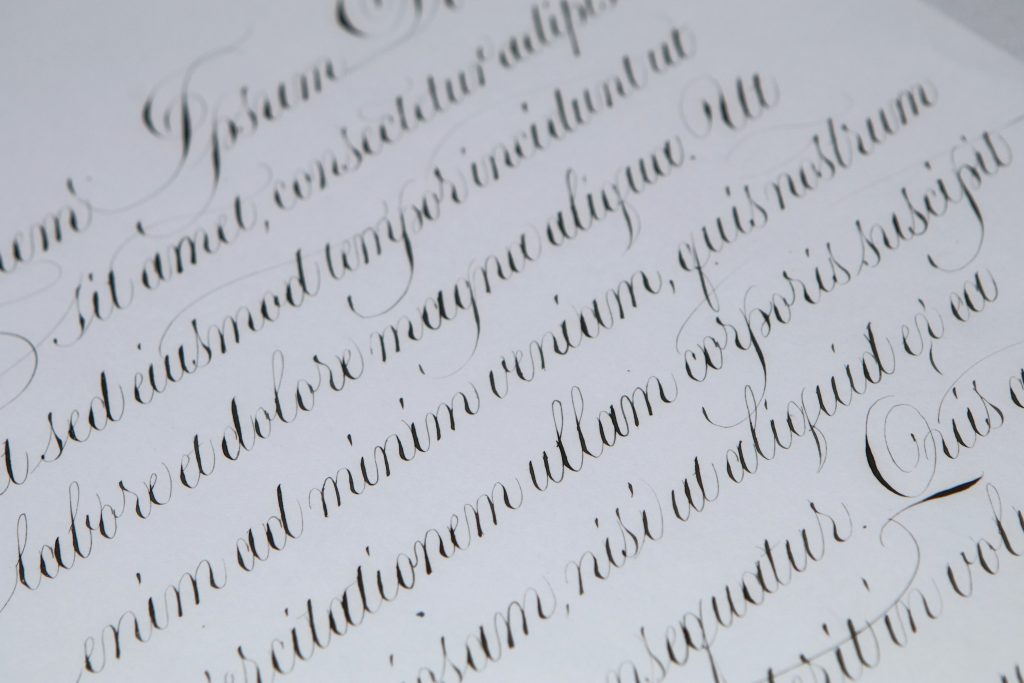 em Ipsum
sit amet, consectetur adipis
sed eiusmod tempor incidunt ut
labore et dolore magna aliqua. Ut
enim ad minim veniam, quis nostrum
ercitationem ullam corporis suscipit
osam, nisi ut aliquid ex ea
nsequatur. Quis a
erit in volu